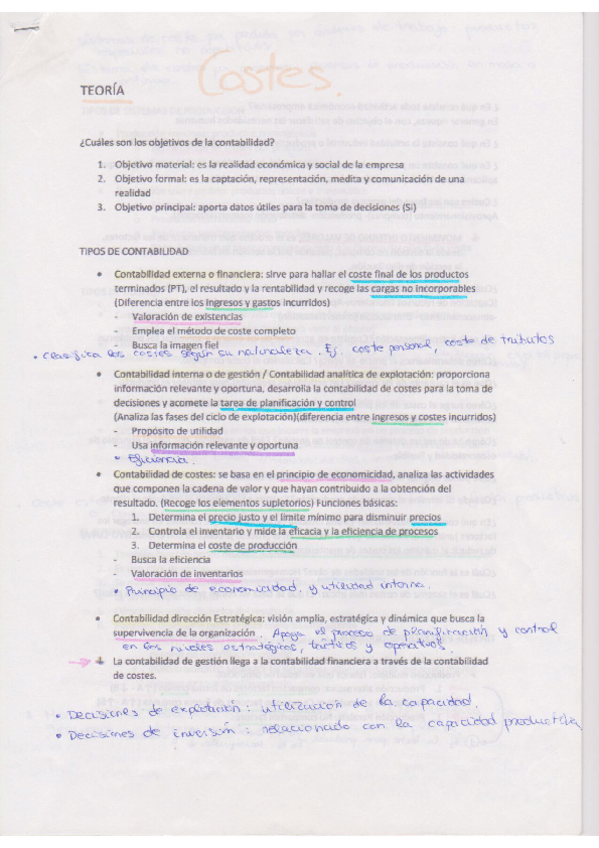 Costes.
TEORÍA
¿Cuáles son los objetivos de la contabilidad?
1. Objetivo material: es la realidad económica y social de la empresa
2. Objetivo formal: es la captación, representación, medita y comunicación de una
realidad
3. Objetivo principal: aporta datos útiles para la toma de decisiones (Si)
TIPOS DE CONTABILIDAD
• Contabilidad externa o financiera: sirve para hallar el coste final de los productos
terminados (PT), el resultado y la rentabilidad y recoge las cargas no incorporables
(Diferencia entre los ingresos y gastos incurridos)
- Valoración de existencias
- Emplea el método de coste completo
- Busca la imagen fiel
• Clasifica los costes según su naturaleza. Ej. coste personal, coste de tributos
• Contabilidad interna o de gestión / Contabilidad analítica de explotación: proporciona
información relevante y oportuna, desarrolla la contabilidad de costes para la toma de
decisiones y acomete la tarea de planificación y control
(Analiza las fases del ciclo de explotación)(diferencia entre ingresos y costes incurridos)
- Propósito de utilidad
- Usa información relevante y oportuna
• Eficiencia.
• Contabilidad de costes: se basa en el principio de economicidad, analiza las actividades
que componen la cadena de valor y que hayan contribuido a la obtención del
resultado. (Recoge los elementos supletorios) Funciones básicas:
1. Determina el precio justo y el límite mínimo para disminuir precios
2. Controla el inventario y mide la eficacia y la eficiencia de procesos
3. Determina el coste de producción
- Busca la eficiencia
- Valoración de inventarios
• Principio de economicidad y utilidad interna.
• Contabilidad dirección Estratégica: visión amplia, estratégica y dinámica que busca la
supervivencia de la organización. Apoya el proceso de planificación y control
en los niveles estratégicos, tácticos y operativos.
La contabilidad de gestión llega a la contabilidad financiera a través de la contabilidad
de costes.
• Decisiones de explotación: utilización de la capacidad.
• Decisiones de inversión: relacionado con la capacidad productiva